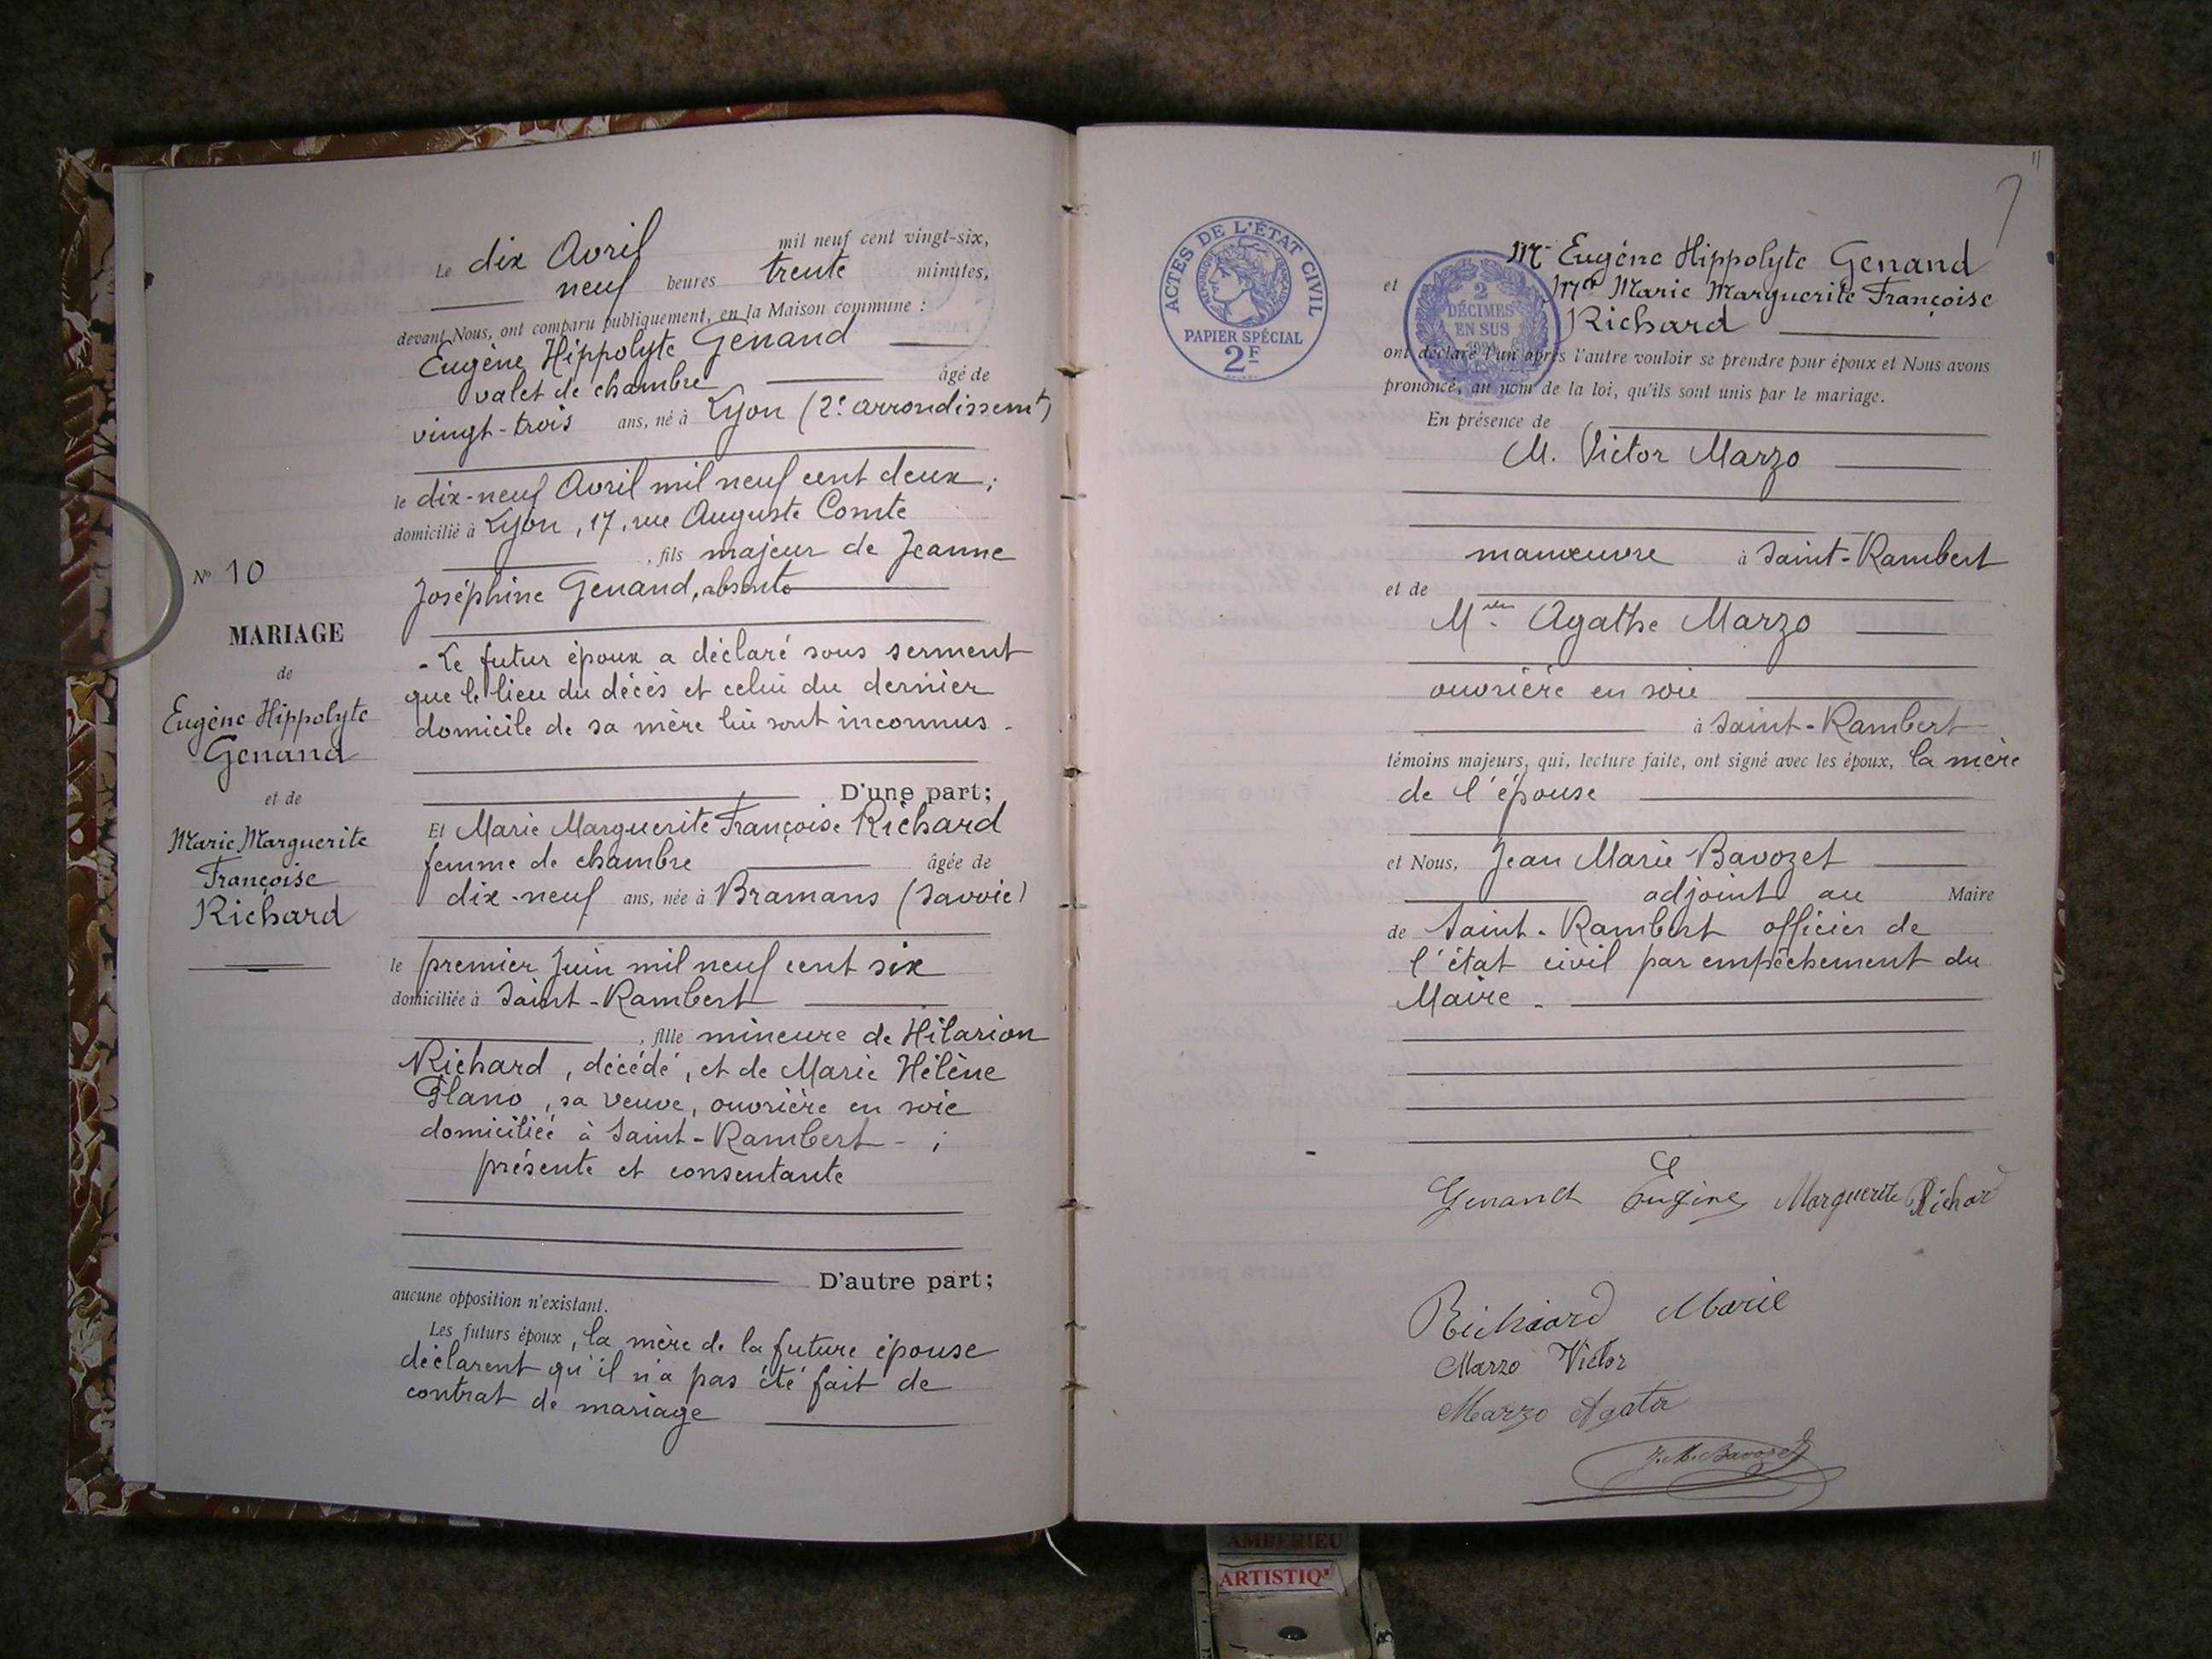 Le dix Avril mil neuf cent vingt-six,
neuf heures trente minutes,
devant Nous, ont comparu publiquement, en la Maison commune :
Eugène Hippolyte Genand
valet de chambre âgé de
vingt-trois ans, né à Lyon (2e arrondissemt)
le dix-neuf Avril mil neuf cent deux ;
domicilié à Lyon, 17, rue Auguste Comte
, fils majeur de Jeanne
Joséphine Genand, absente
- Le futur époux a déclaré sous serment
que le lieu du décès et celui du dernier
domicile de sa mère lui sont inconnus -
D'une part;
Et Marie Marguerite Françoise Richard
femme de chambre âgée de
dix-neuf ans, née à Bramans (Savoie)
le premier Juin mil neuf cent six
domiciliée à Saint-Rambert
, fille mineure de Hilarion
Richard, décédé, et de Marie Hélène
Plano, sa veuve, ouvrière en soie
domiciliée à Saint-Rambert - ;
présente et consentante
D'autre part;
aucune opposition n'existant.
Les futurs époux, la mère de la future épouse
déclarent qu'il n'a pas été fait de
contrat de mariage
No 10
MARIAGE
de
Eugène Hippolyte
Genand
et de
Marie Marguerite
Françoise
Richard
11
ACTES DE L'ÉTAT CIVIL
RÉPUBLIQUE FRANÇAISE
PAPIER SPÉCIAL
2F
2
DÉCIMES
EN SUS
Mr Eugène Hippolyte Genand
et Mlle Marie Marguerite Françoise
Richard
ont déclaré l'un après l'autre vouloir se prendre pour époux et Nous avons
prononcé, au nom de la loi, qu'ils sont unis par le mariage.
En présence de
M. Victor Marzo
manœuvre à Saint-Rambert
et de
Agathe Marzo
ouvrière en soie
à Saint-Rambert
témoins majeurs, qui, lecture faite, ont signé avec les époux, la mère
de l'épouse
et Nous, Jean Marie Bavozet
adjoint au Maire
de Saint-Rambert officier de
l'état civil par empêchement du
Maire -
Genand Eugène Marguerite Richard
Richard Marie
Marzo Victor
Marzo Agata
J. M. Bavozet
AMBERIEU
ARTISTIQ